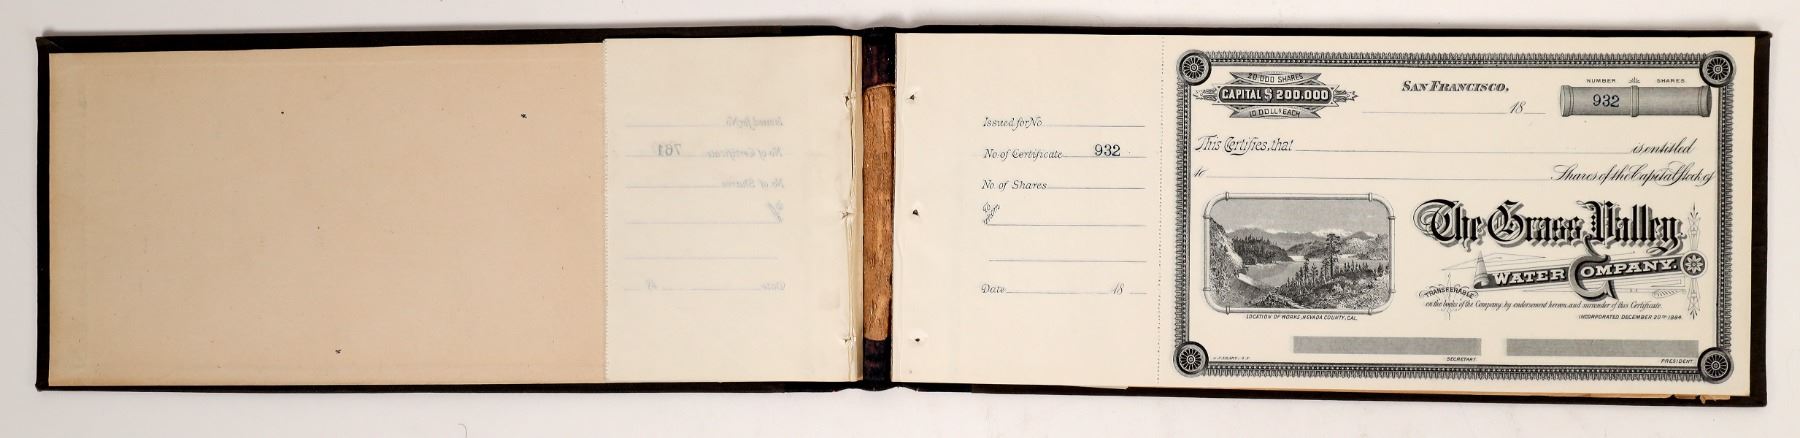 Issued for No
No. of Certificate 761
No. of Shares
Date 18
Issued for No
No. of Certificate 932
No. of Shares
To whom
Date 18
20,000 SHARES
CAPITAL $200,000
10 DOLLS EACH
SAN FRANCISCO,
18
NUMBER
SHARES.
932
This Certifies, that is entitled
to Shares of the Capital Stock of
The Grass Valley
WATER COMPANY.
TRANSFERABLE
on the books of the Company, by endorsement hereon and surrender of this Certificate.
INCORPORATED DECEMBER 20TH 1984.
LOCATION OF WORKS, NEVADA COUNTY, CAL.
SECRETARY.
PRESIDENT.